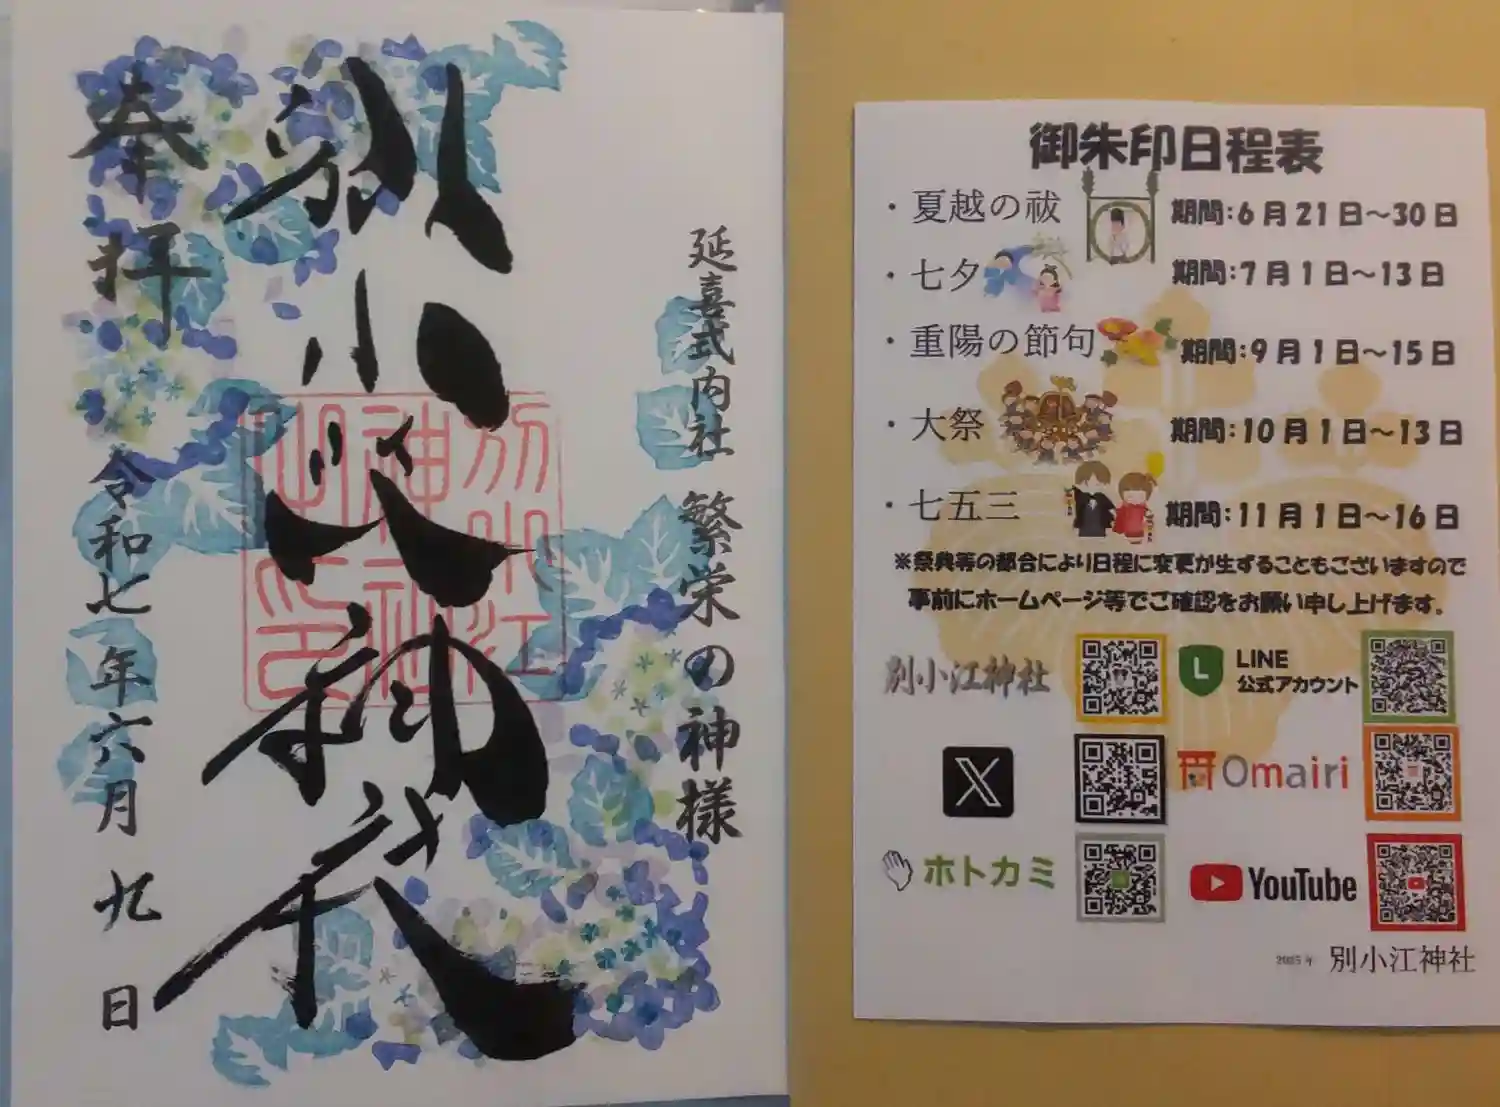 奉拝
別小江神社
延喜式内社 繁栄の神様
令和七年六月九日
別小江
神社
之印
御朱印日程表
・夏越の祓 期間:6月21日~30日
・七夕 期間:7月1日~13日
・重陽の節句 期間:9月1日~15日
・大祭 期間:10月1日~13日
・七五三 期間:11月1日~16日
※祭典等の都合により日程に変更が生ずることもございますので
事前にホームページ等でご確認をお願い申し上げます。
別小江神社
L LINE
公式アカウント
X
Omairi
ホトカミ
YouTube
2025年 別小江神社